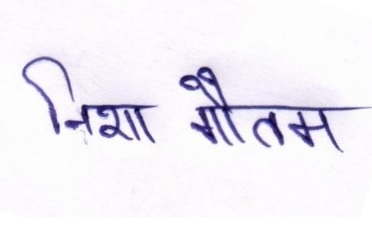 निशा गौतम